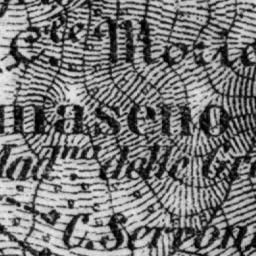 C.te Moric
maseno
Mad.na delle Gr
C. Serron